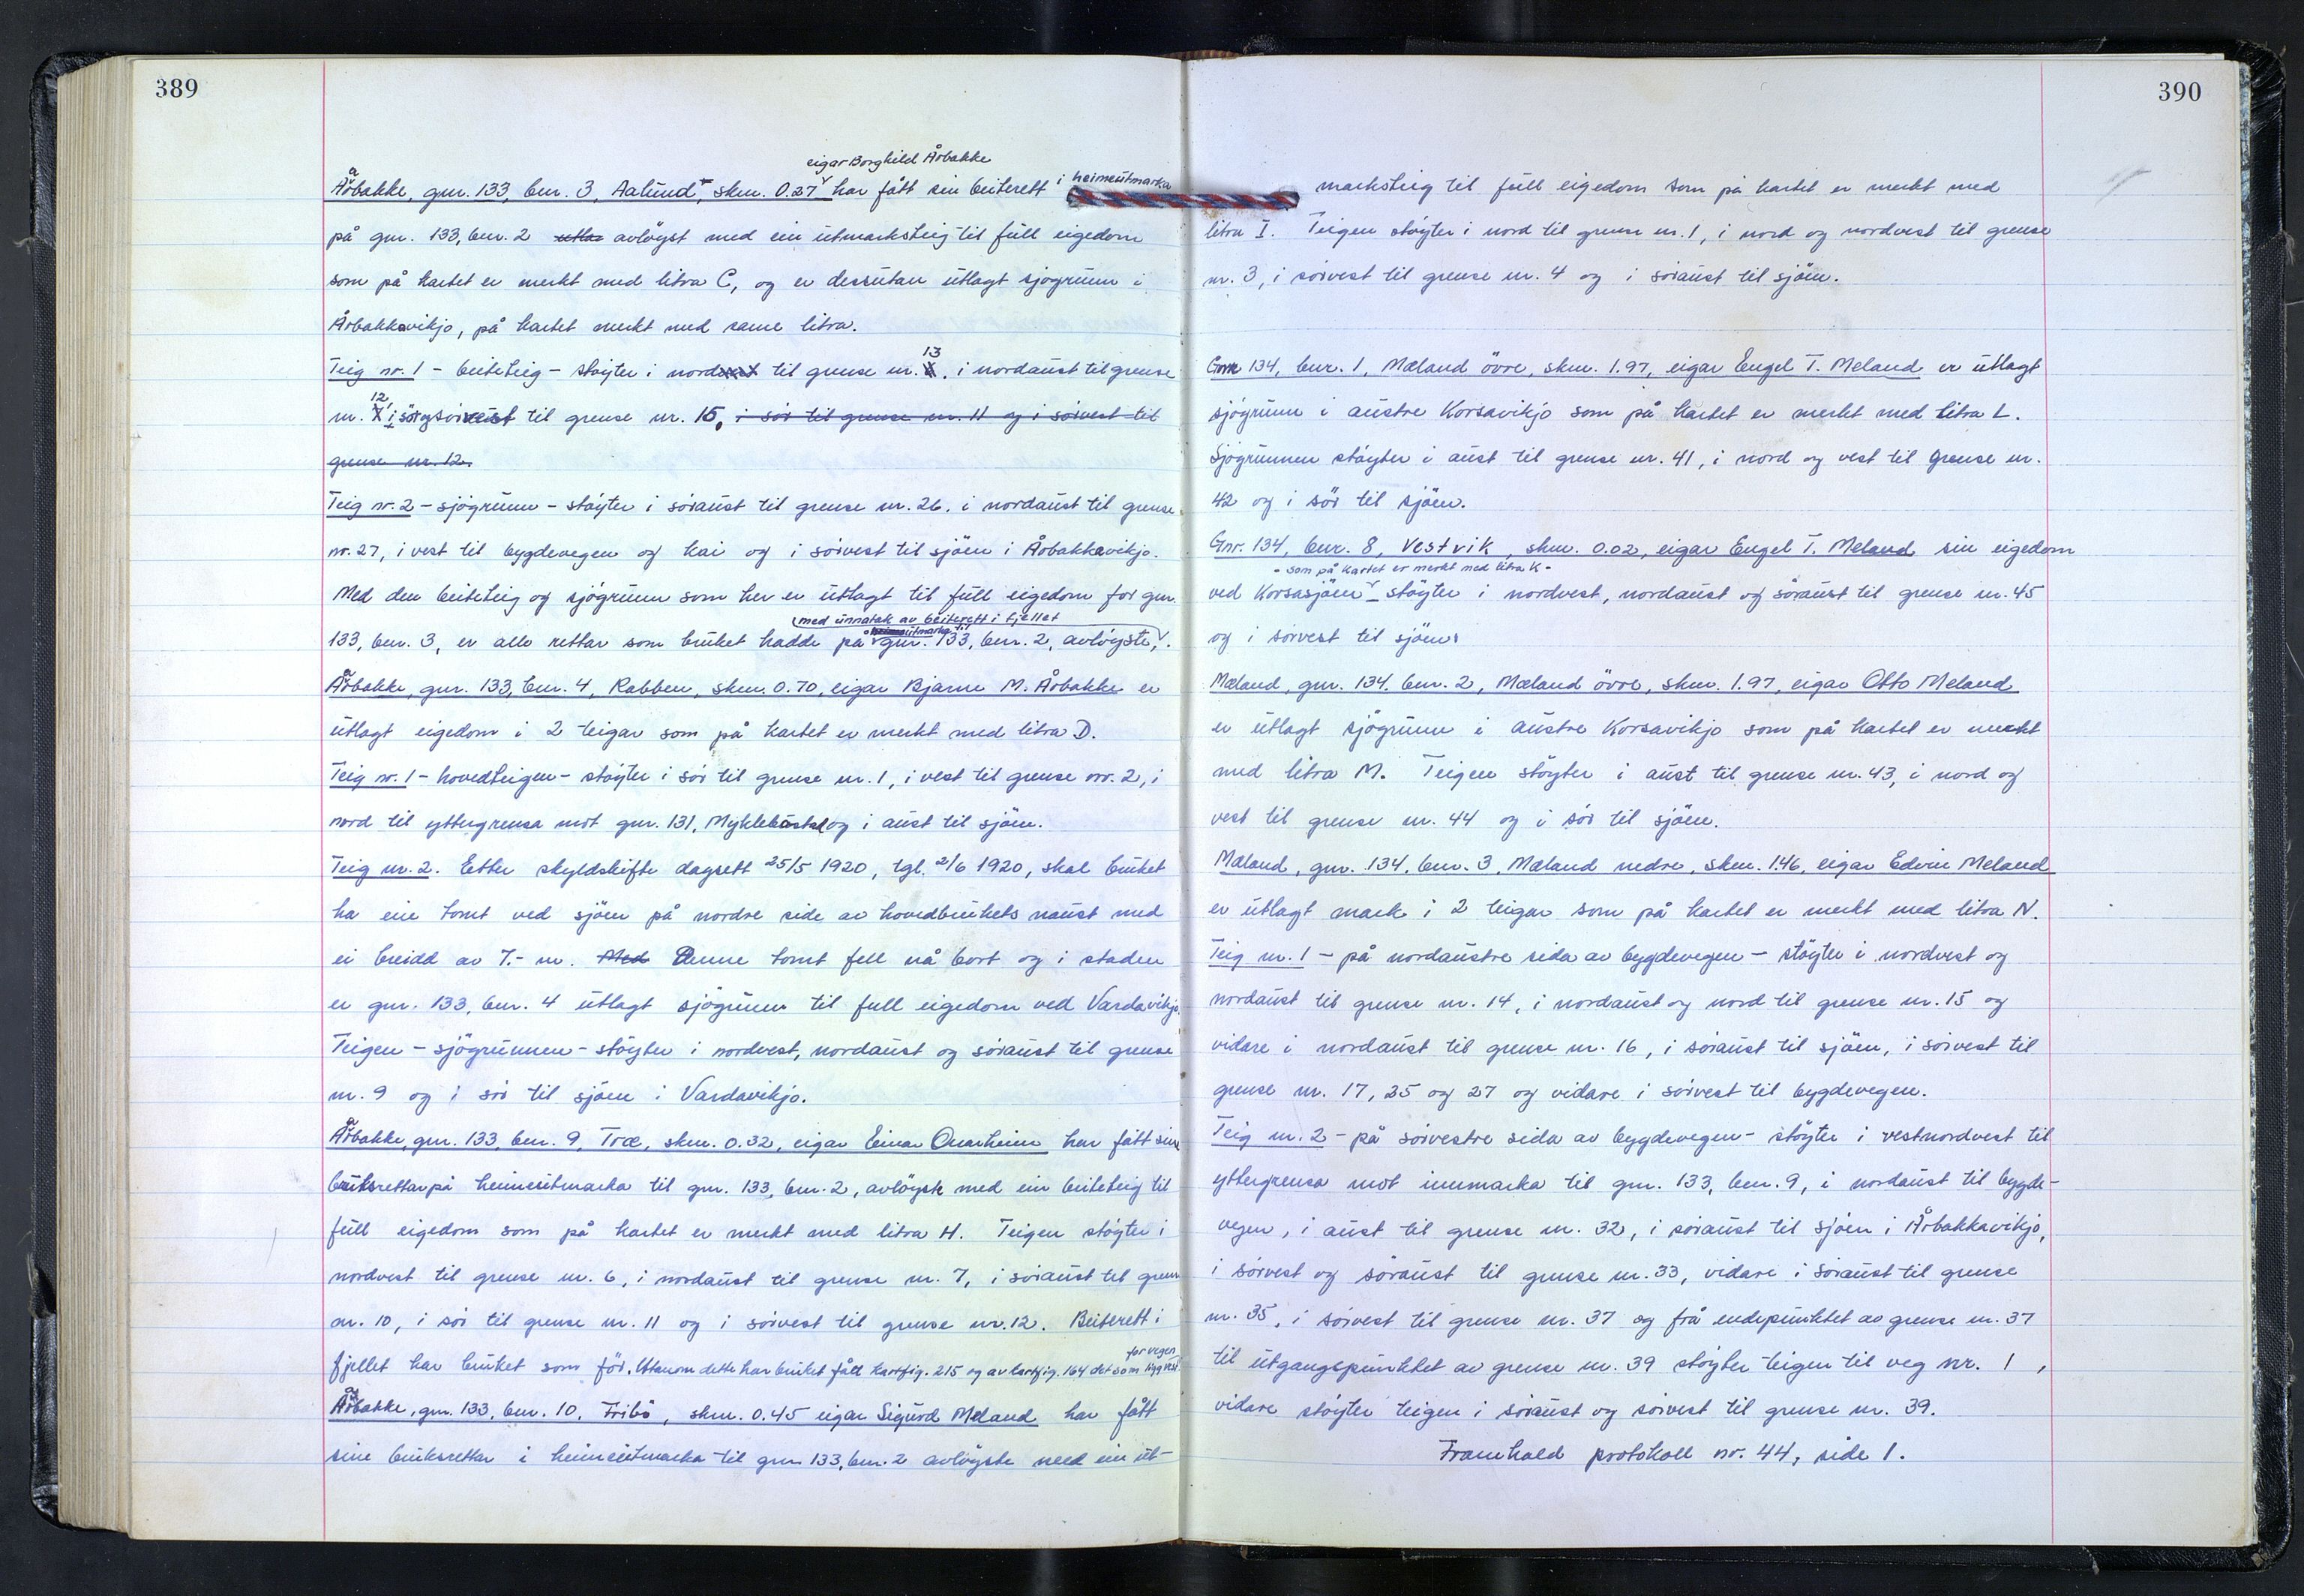 389
eigar Borghild Årbakke
Årbakke, gnr. 133, bnr. 3, Aalund, skm. 0.27 har fått sin beiterett i heimeutmarka
på gnr. 133, bnr. 2 utla avløyst med ein utmarksteig til full eigedom
som på kartet er merkt med litra C, og er dessutan utlagt sjøgrunn i
Årbakkavikjo, på kartet merkt med same litra.
Teig nr. 1 - beiteteig - støyter i nord til grense nr. 13, i nordaust til grense
nr. 12, i sør og sørvest til grense nr. 15, i sør til grense nr. 11 og i sørvest til
grense nr. 12.
Teig nr. 2 - sjøgrunn - støyter i søraust til grense nr. 26, i nordaust til grense
nr. 27, i vest til bygdevegen og kai og i sørvest til sjøen i Årbakkavikjo.
Med den beiteteig og sjøgrunn som her er utlagt til full eigedom for gnr.
med unnatak av beiterett i fjellet
heimeutmarka til
133, bnr. 3, er alle rettar som bruket hadde på gnr. 133, bnr. 2, avløyste.
Årbakke, gnr. 133, bnr. 4, Rabben, skm. 0.70, eigar Bjarne M. Årbakke er
utlagt eigedom i 2 teigar som på kartet er merkt med litra D.
Teig nr. 1 - hovedteigen - støyter i sør til grense nr. 1, i vest til grense nr. 2, i
nord til yttergrensa mot gnr. 131, Myklebust og i aust til sjøen.
Teig nr. 2. Etter skyldskifte dagsett 25/5 1920, tgl. 2/6 1920, skal bruket
ha ein tomt ved sjøen på nordre side av hovedbrukets naust med
ei breidd av 7.- m. Med Denne tomt fell nå bort og i staden
er gnr. 133, bnr. 4 utlagt sjøgrunn til full eigedom ved Vardavikjo.
Teigen - sjøgrunnen - støyter i nordvest, nordaust og søraust til grense
nr. 9 og i sør til sjøen i Vardavikjo.
Årbakke, gnr. 133, bnr. 9, Træ, skm. 0.32, eigar Einar Onarheim har fått sine
bruksrettar på heimeutmarka til gnr. 133, bnr. 2, avløyste med ein beiteteig til
full eigedom som på kartet er merkt med litra H. Teigen støyter i
nordvest til grense nr. 6, i nordaust til grense nr. 7, i søraust til grense
nr. 10, i sør til grense nr. 11 og i sørvest til grense nr. 12. Beiterett i
fjellet har bruket som før. Utanom dette har bruket fått kartfig. 215 og av kartfig. 164 det som ligg vest for vegen
Årbakke, gnr. 133, bnr. 10, Fribo, skm. 0.45 eigar Sigurd Meland har fått
sine bruksrettar i heimeutmarka til gnr. 133, bnr. 2 avløyste med ein ut-
390
marksteig til full eigedom som på kartet er merkt med
litra I. Teigen støyter i nord til grense nr. 1, i nord og nordvest til grense
nr. 3, i sørvest til grense nr. 4 og i søraust til sjøen.
Gnr. 134, bnr. 1, Mæland øvre, skm. 1.97, eigar Engel T. Meland er utlagt
sjøgrunn i austre Korsavikjo som på kartet er merkt med litra L.
Sjøgrunnen støyter i aust til grense nr. 41, i nord og vest til grense nr.
42 og i sør til sjøen.
Gnr. 134, bnr. 8, Vestvik, skm. 0.02, eigar Engel T. Meland sin eigedom
- som på kartet er merkt med litra K -
ved Korsasjøen støyter i nordvest, nordaust og søraust til grense nr. 45
og i sørvest til sjøen.
Mæland, gnr. 134, bnr. 2, Mæland øvre, skm. 1.97, eigar Otto Meland
er utlagt sjøgrunn i austre Korsavikjo som på kartet er merkt
med litra M. Teigen støyter i aust til grense nr. 43, i nord og
vest til grense nr. 44 og i sør til sjøen.
Mæland, gnr. 134, bnr. 3, Mæland nedre, skm. 1.46, eigar Edvin Meland
er utlagt mark i 2 teigar som på kartet er merkt med litra N.
Teig nr. 1 - på nordaustre sida av bygdevegen - støyter i nordvest og
nordaust til grense nr. 14, i nordaust og nord til grense nr. 15 og
vidare i nordaust til grense nr. 16, i søraust til sjøen, i sørvest til
grense nr. 17, 25 og 27 og vidare i sørvest til bygdevegen.
Teig nr. 2 - på sørvestre sida av bygdevegen - støyter i vestnordvest til
yttergrensa mot innmarka til gnr. 133, bnr. 9, i nordaust til bygde-
vegen, i aust til grense nr. 32, i søraust til sjøen i Årbakkavikjo,
i sørvest og søraust til grense nr. 33, vidare i søraust til grense
nr. 35, i sørvest til grense nr. 37 og frå endepunktet av grense nr. 37
til utgangspunktet av grense nr. 39 støyter teigen til veg nr. 1,
vidare støyter teigen i søraust og sørvest til grense nr. 39.
Framhald protokoll nr. 44, side 1.